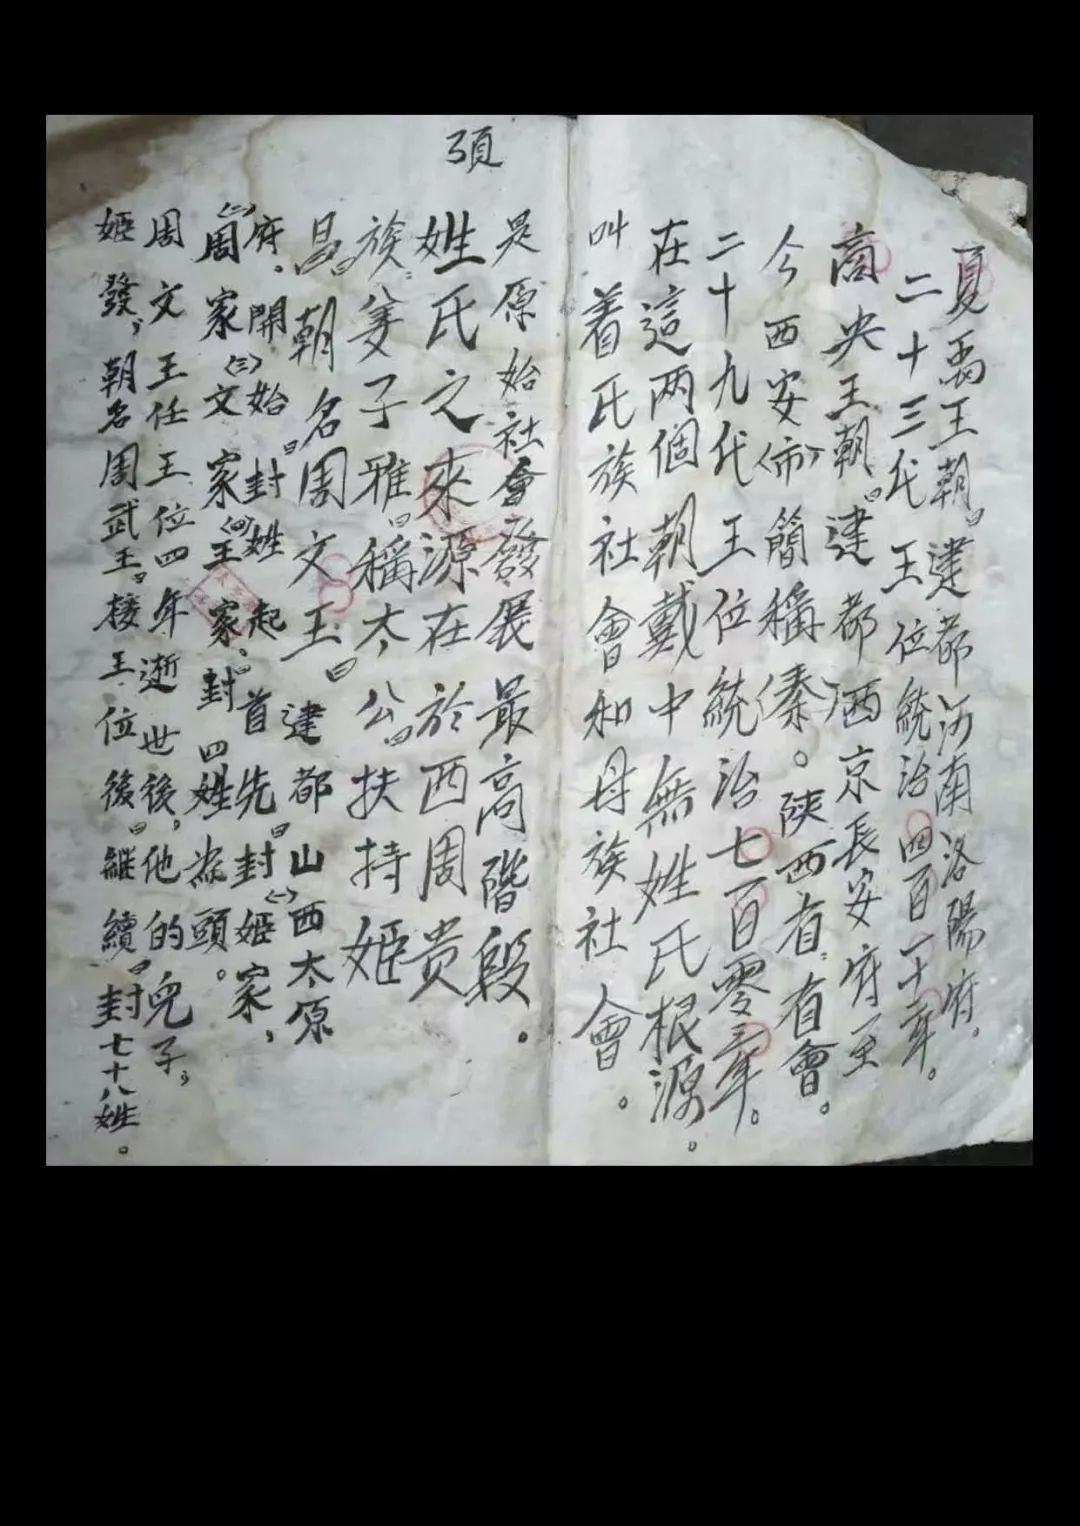 夏禹王朝。建都河南洛陽府。
二十三代王位統治四百二十年。
商央王朝。建都西京長安府至
今西安(市)簡稱秦。陝西省省會。
二十九代王位統治七百零三年。
在這两個朝戴中無姓氏根源。
叫着氏族社會和母族社會。
項
是原始社會發展最高階段。
姓氏之來源在於西周贵
族姜子雅。稱太公。扶持姬
昌。朝名周文王。建都山西太原
府。開始封姓起首先封(一)姬家,
(二)周家(三)文家(四)王家。封四姓為頭。
周文王任王位四年逝世後,他的兒子,
姬發,朝名周武王。接王位後。継續封七十八姓。